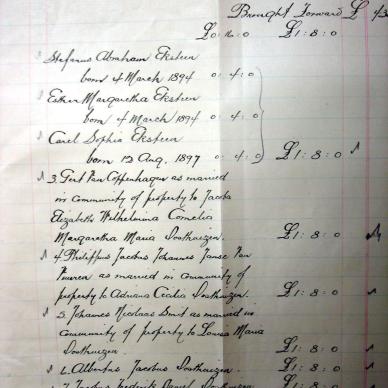 Brought Forward £ 43
£0:16:0 £1:8:0
Stefanus Abraham Eksteen
born 4 March 1894 0:4:0
Esther Margaretha Eksteen
born 4 March 1894 0:4:0
Carel Sophia Eksteen
born 12 Aug. 1897 0:4:0 £1:8:0
3. Gert Van Coppenhagen as married
in community of property to Jacoba
Elizabeth Wilhelmina Cornelia
Margaretha Maria Oosthuizen. £1:8:0
4. Philippus Jacobus Johannes Janse Van
Vuuren as married in community of
property to Adriana Cecilia Oosthuizen. £1:8:0
5. Johannes Nicolaas Smit as married in
community of property to Louisa Maria
Oosthuizen. £1:8:0
6. Albertus Jacobus Oosthuizen. £1:8:0
7. Jacobus Frederik Daniel Oosthuizen £1:8:0